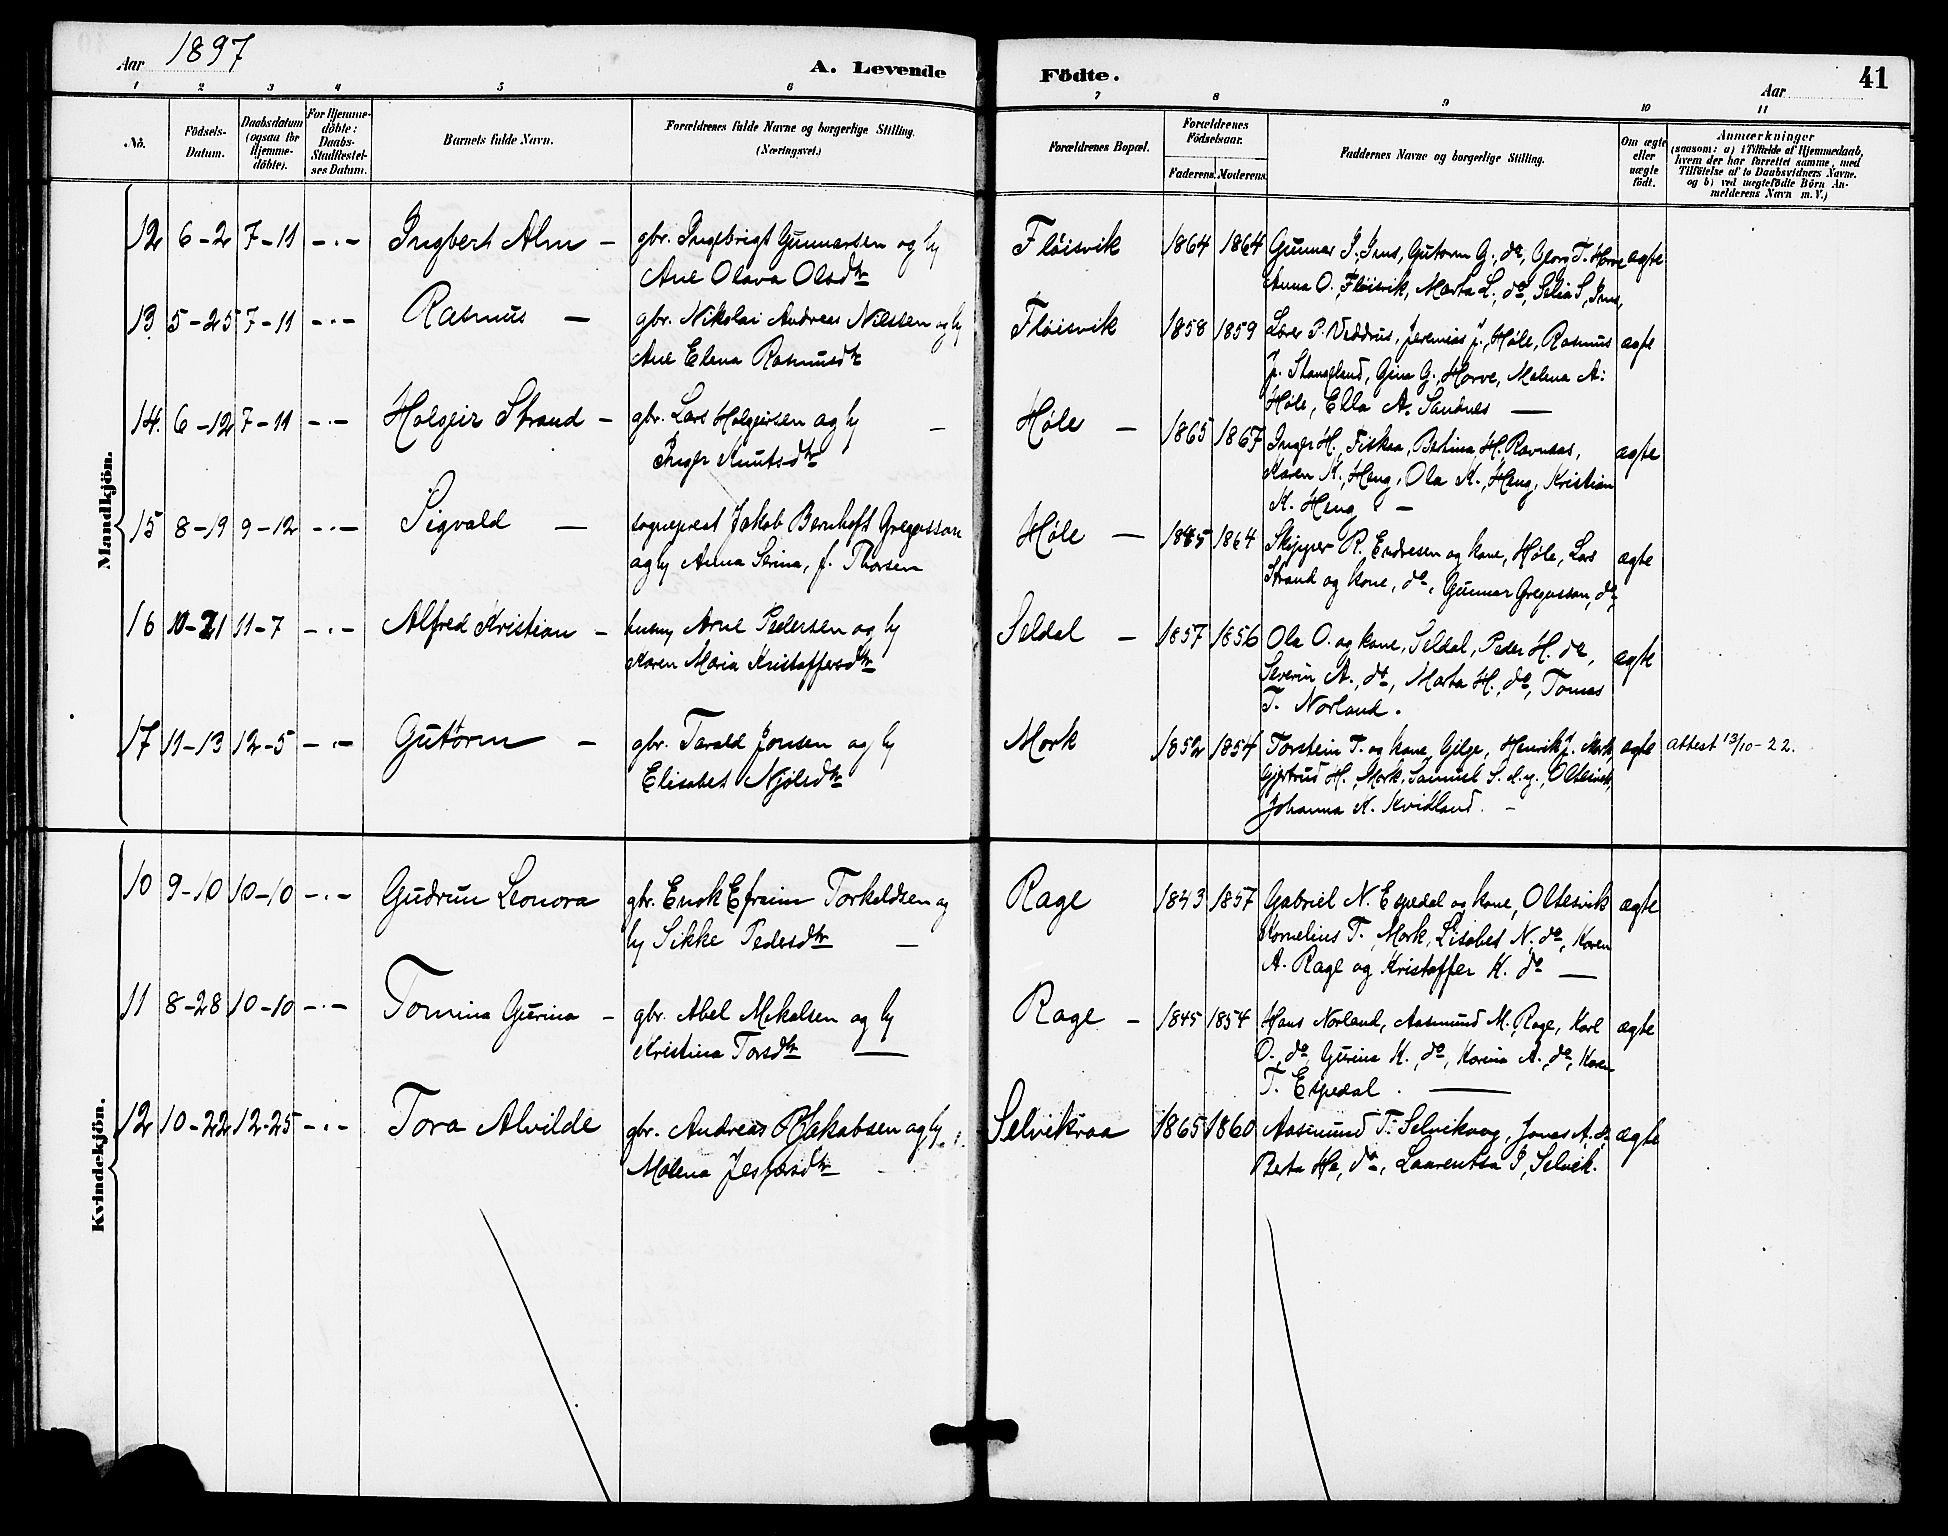 Aar 1897
A. Levende Födte.
Aar
41
1 2 3 4 5 6 7 8 9 10 11
No.
Födsels-Datum.
Daabsdatum (ogsaa for Hjemme-döbte).
For Hjemme-döbte: Daabs-Stadfæstel-ses Datum.
Barnets fulde Navn.
Forældrenes fulde Navne og borgerlige Stilling.
(Næringsvei.)
Forældrenes Bopæl.
Forældrenes Födselsaar.
Faderens. Moderens.
Faddernes Navne og borgerlige Stilling.
Om ægte eller uægte født.
Anmærkninger
(saasom: a) i Tilfælde af Hjemmedaab,
hvem der har forrettet samme, med
Tilföielse af to Daabsvidners Navne.
og b) ved uægtefødte Börn An-
melderens Navn m. V.)
Mandkjön.
12 6-2 7-11 -.- Ingbert Alm - gbr. Ingebrigt Gunnarsen og h Fløisvik 1864 1864 Gunnar I., Ims, Gutorm G., do, Georg T. Horve ægte
Ane Olava Olsdtr
Anna O. Fløisvik, Marta L., do, Selia S, Ims,
13 5-25 7-11 -.- Rasmus - gbr. Nikolai Andreas Nilssen og h Fløisvik 1858 1859 Lærer P. Veddrus, Jeremias J., Høle, Rasmus ægte
Ane Elena Rasmusdtr
J. Stangeland, Gina G., Horve, Malena A.
Høle, Ella A. Sandnes —
14. 6-12 7-11 -.- Holgeir Strand - gbr. Lars Holgeirsen og h - Høle - 1865 1867 Inger H., Fiskaa, Bertina H. Ravnaas, ægte
Inger Knutsdtr
Karen K., Heng, Ola K., Heng, Kristian
K. Heng -
15 8-19 9-12 -.- Sigvald - sogneprest Jakob Bernhoft Gregusson Høle - 1845 1864 Skipper R. Endresen og kone, Høle, Lars ægte
og h Anna Serina, f. Thorsen
Strand og kone, do, Gunnar Gregusson, do,
16 10-21 11-7 -.- Alfred Kristian - husmy Arne Pedersen og h Seldal - 1857 1856 Ola O. og kone, Seldal, Peder H. do, ægte
Karen Maria Kristoffersdtr
Severin A., do, Marta H., do, Tomas
T. Norland.
17 11-13 12-5 -.- Gutorm - gbr. Tarald Jonsen og h Mork 1852 1854 Torstein T. og kone, Gilje, Henrik J. Mork, ægte attest 13/10-22.
Elisabet Njølsdtr
Gjertrud H. Mork, Samuel S. d.y., Oltesvik,
Johanna K. Kvidland. -
Kvindekjön.
10 9-10 10-10 -.- Gudrun Leonora gbr. Enok Efraim Torkeldsen og Rage 1843 1857 Gabriel N. Espedal og kone, Oltesvik ægte
h Sikke Pedersdtr -
Kornelius T. Mork, Lisabet N. do, Karen
A. Rage og Kristoffer K. do —
11 8-28 10-10 -.- Tomina Gurina - gbr. Abel Mikalsen og h Rage - 1845 1854 Hans Norland, Aasmund M. Rage, Karl ægte
Kristina Torsdtr —
O., do, Gurina K., do, Karina A. do, Karen
T. Espedal. —
12 10-22 12-25 -.- Tora Alvilde gbr. Andreas Jakobsen og h Selvikraa 1865 1860 Aasmund T. Selvikvag, Jonas A. do ægte
Malena Jespersdtr -
Berta Ha, do, Laurentsa I, Selvik.